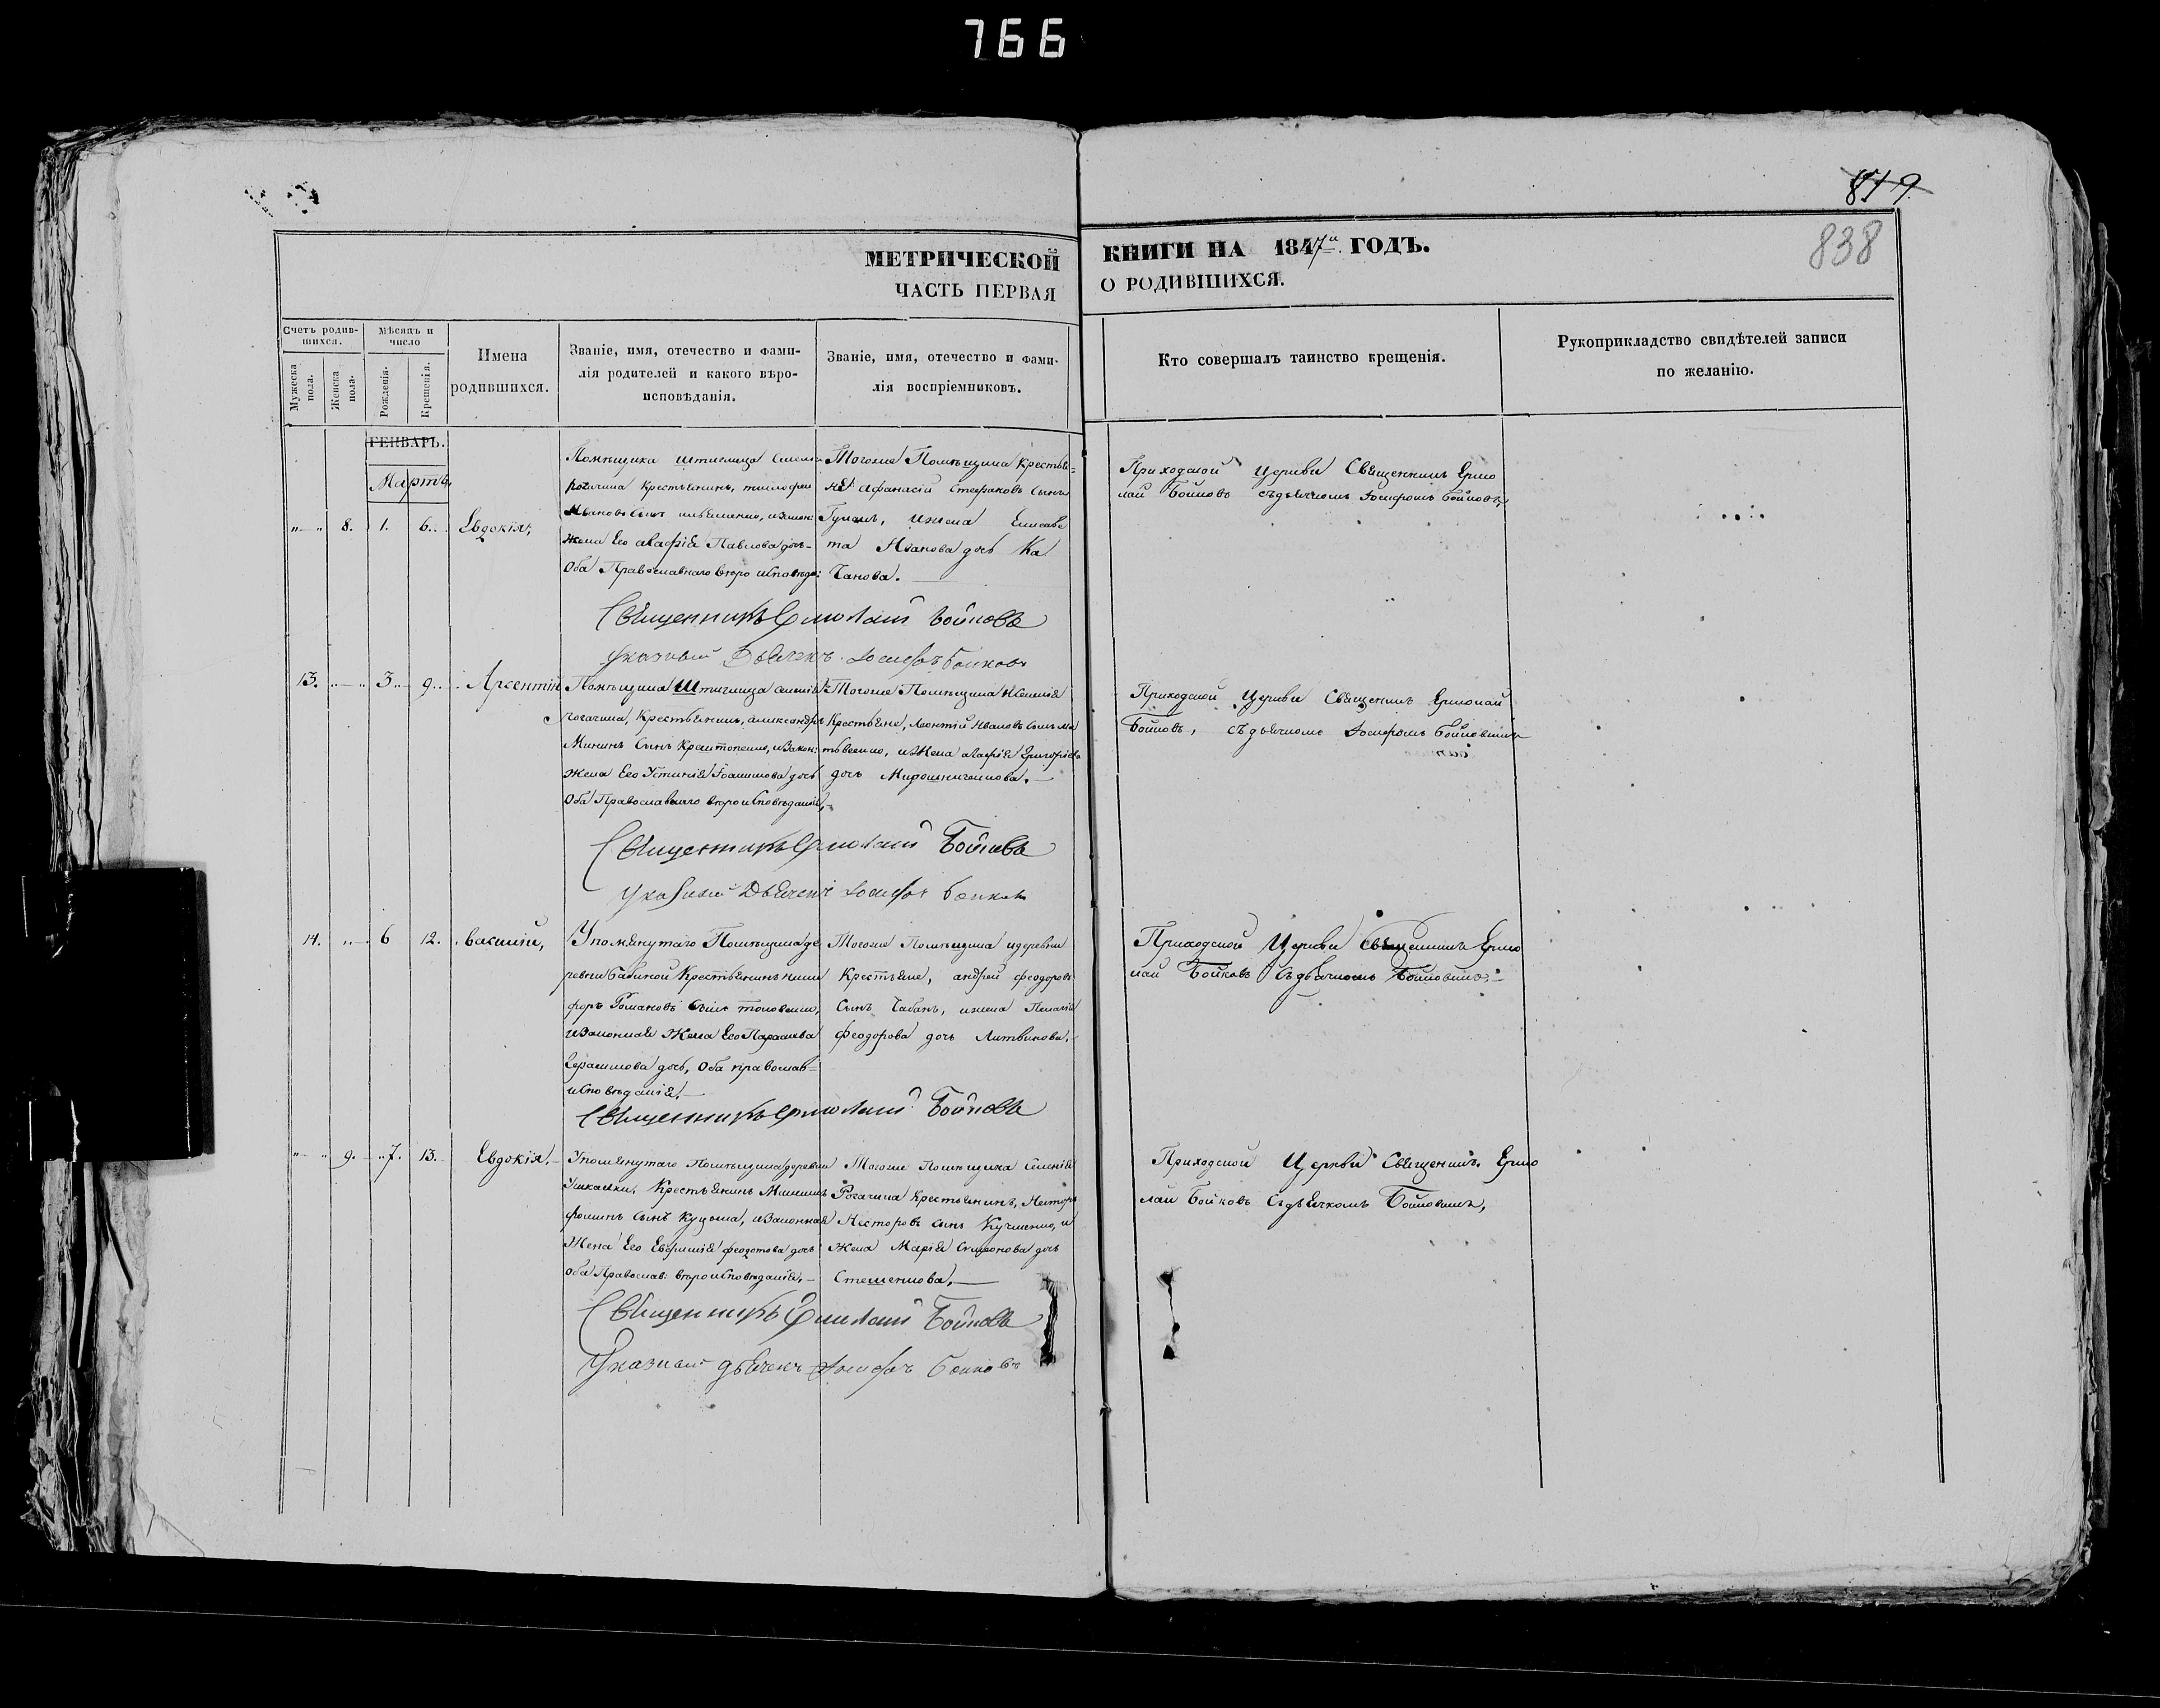 766
819
838
МЕТРИЧЕСКОЙ КНИГИ НА 1847й ГОДЪ.
ЧАСТЬ ПЕРВАЯ О РОДИВШИХСЯ.
Счетъ родив-
шихся.
Мѣсяцъ и
число
Мужеска
пола.
Женска
пола.
Рожденія.
Крещенія.
Имена
родившихся.
Званіе, имя, отечество и фами-
лія родителей и какого вѣро-
исповѣданія.
Званіе, имя, отечество и фами-
лія воспріемниковъ.
Кто совершалъ таинство крещенія.
Рукоприкладство свидѣтелей записи
по желанію.
ГЕНВАРЬ.
Мартъ
8. 1. 6. Евдокія,
Помѣщика Штиглица
Рогачика Крестьянинъ, Тимофей
Ивановъ Сынъ
Жена Его Агафія Павлова дочь
Оба Православнаго вѣро исповѣда:
Тогоже Помѣщика Крестья=
не Афанасій Стефановъ Сынъ
Гупалъ, и жена Елисаве
та Иванова дочь Ка
чанова.
Приходской Церкви Священникъ Ермо
лай Бойковъ съ дьячкомъ Іосифомъ Бойковымъ
Священникъ Ермолай Бойковъ
Указный Дьячекъ Іосифъ Бойковъ
13. 3. 9. Арсентій
Помѣщика Штиглица Селенія
Рогачика, Крестьянинъ, Александръ
Мининъ Сынъ и Закон:
Жена Его Устинія Іоакимова дочь
Оба Православнаго вѣроисповѣданія,
Тогоже Помѣщика и Селенія
Крестьяне, Леонтій Ивановъ Сынъ Ма
твѣенко, и Жена Агафія Григорьева
дочь Мирошниченкова.
Приходской Церкви Священникъ Ермолай
Бойковъ, съ дьячкомъ Іосифомъ Бойковымъ
Священникъ Ермолай Бойковъ
Указный Дьячекъ Іосифъ Бойковъ
14. 6 12. Василій,
Упомянутаго Помѣщика де
ревни Бабиной Крестьянинъ Ники
форъ Романовъ Сынъ
и Законная Жена Его Параскева
Герасимова дочь, Оба православ=
исповѣданія.
Тогоже Помѣщика и деревни
Крестьяне, Андрей Феодоровъ
Сынъ Чабанъ, и жена Пелагія
Феодорова дочь Литвинова.
Приходской Церкви Священникъ Ермо
лай Бойковъ Съ дьячкомъ Бойковымъ.
Священникъ Ермолай Бойковъ
9. 7. 13. Евдокія.
Упомянутаго Помѣщика деревни
Ушкалки, Крестьянинъ
Фоминъ Сынъ Кузьма, и Законная
Жена Его Евфимія Феодотова дочь
Оба Православ: вѣроисповѣданія.
Тогоже Помѣщика Селенія
Рогачика Крестьянинъ, Несторъ
Несторовъ Сынъ Кучменко, и
Жена Марія Симонова дочь
Стешенкова.
Приходской Церкви Священникъ Ермо
лай Бойковъ Съ дьячкомъ Бойковымъ,
Священникъ Ермолай Бойковъ
Указный дьячекъ Іосифъ Бойковъ